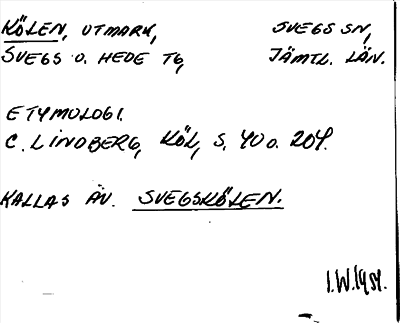 KÖLEN, UTMARK, SVEGS SN,
SVEGS O. HEDE TG, JÄMTL. LÄN.
ETYMOLOGI.
C. LINDBERG, KÖL, S. 40 o. 204.
KALLAS ÄV. SVEGSKÖLEN.
I.W. 1951.